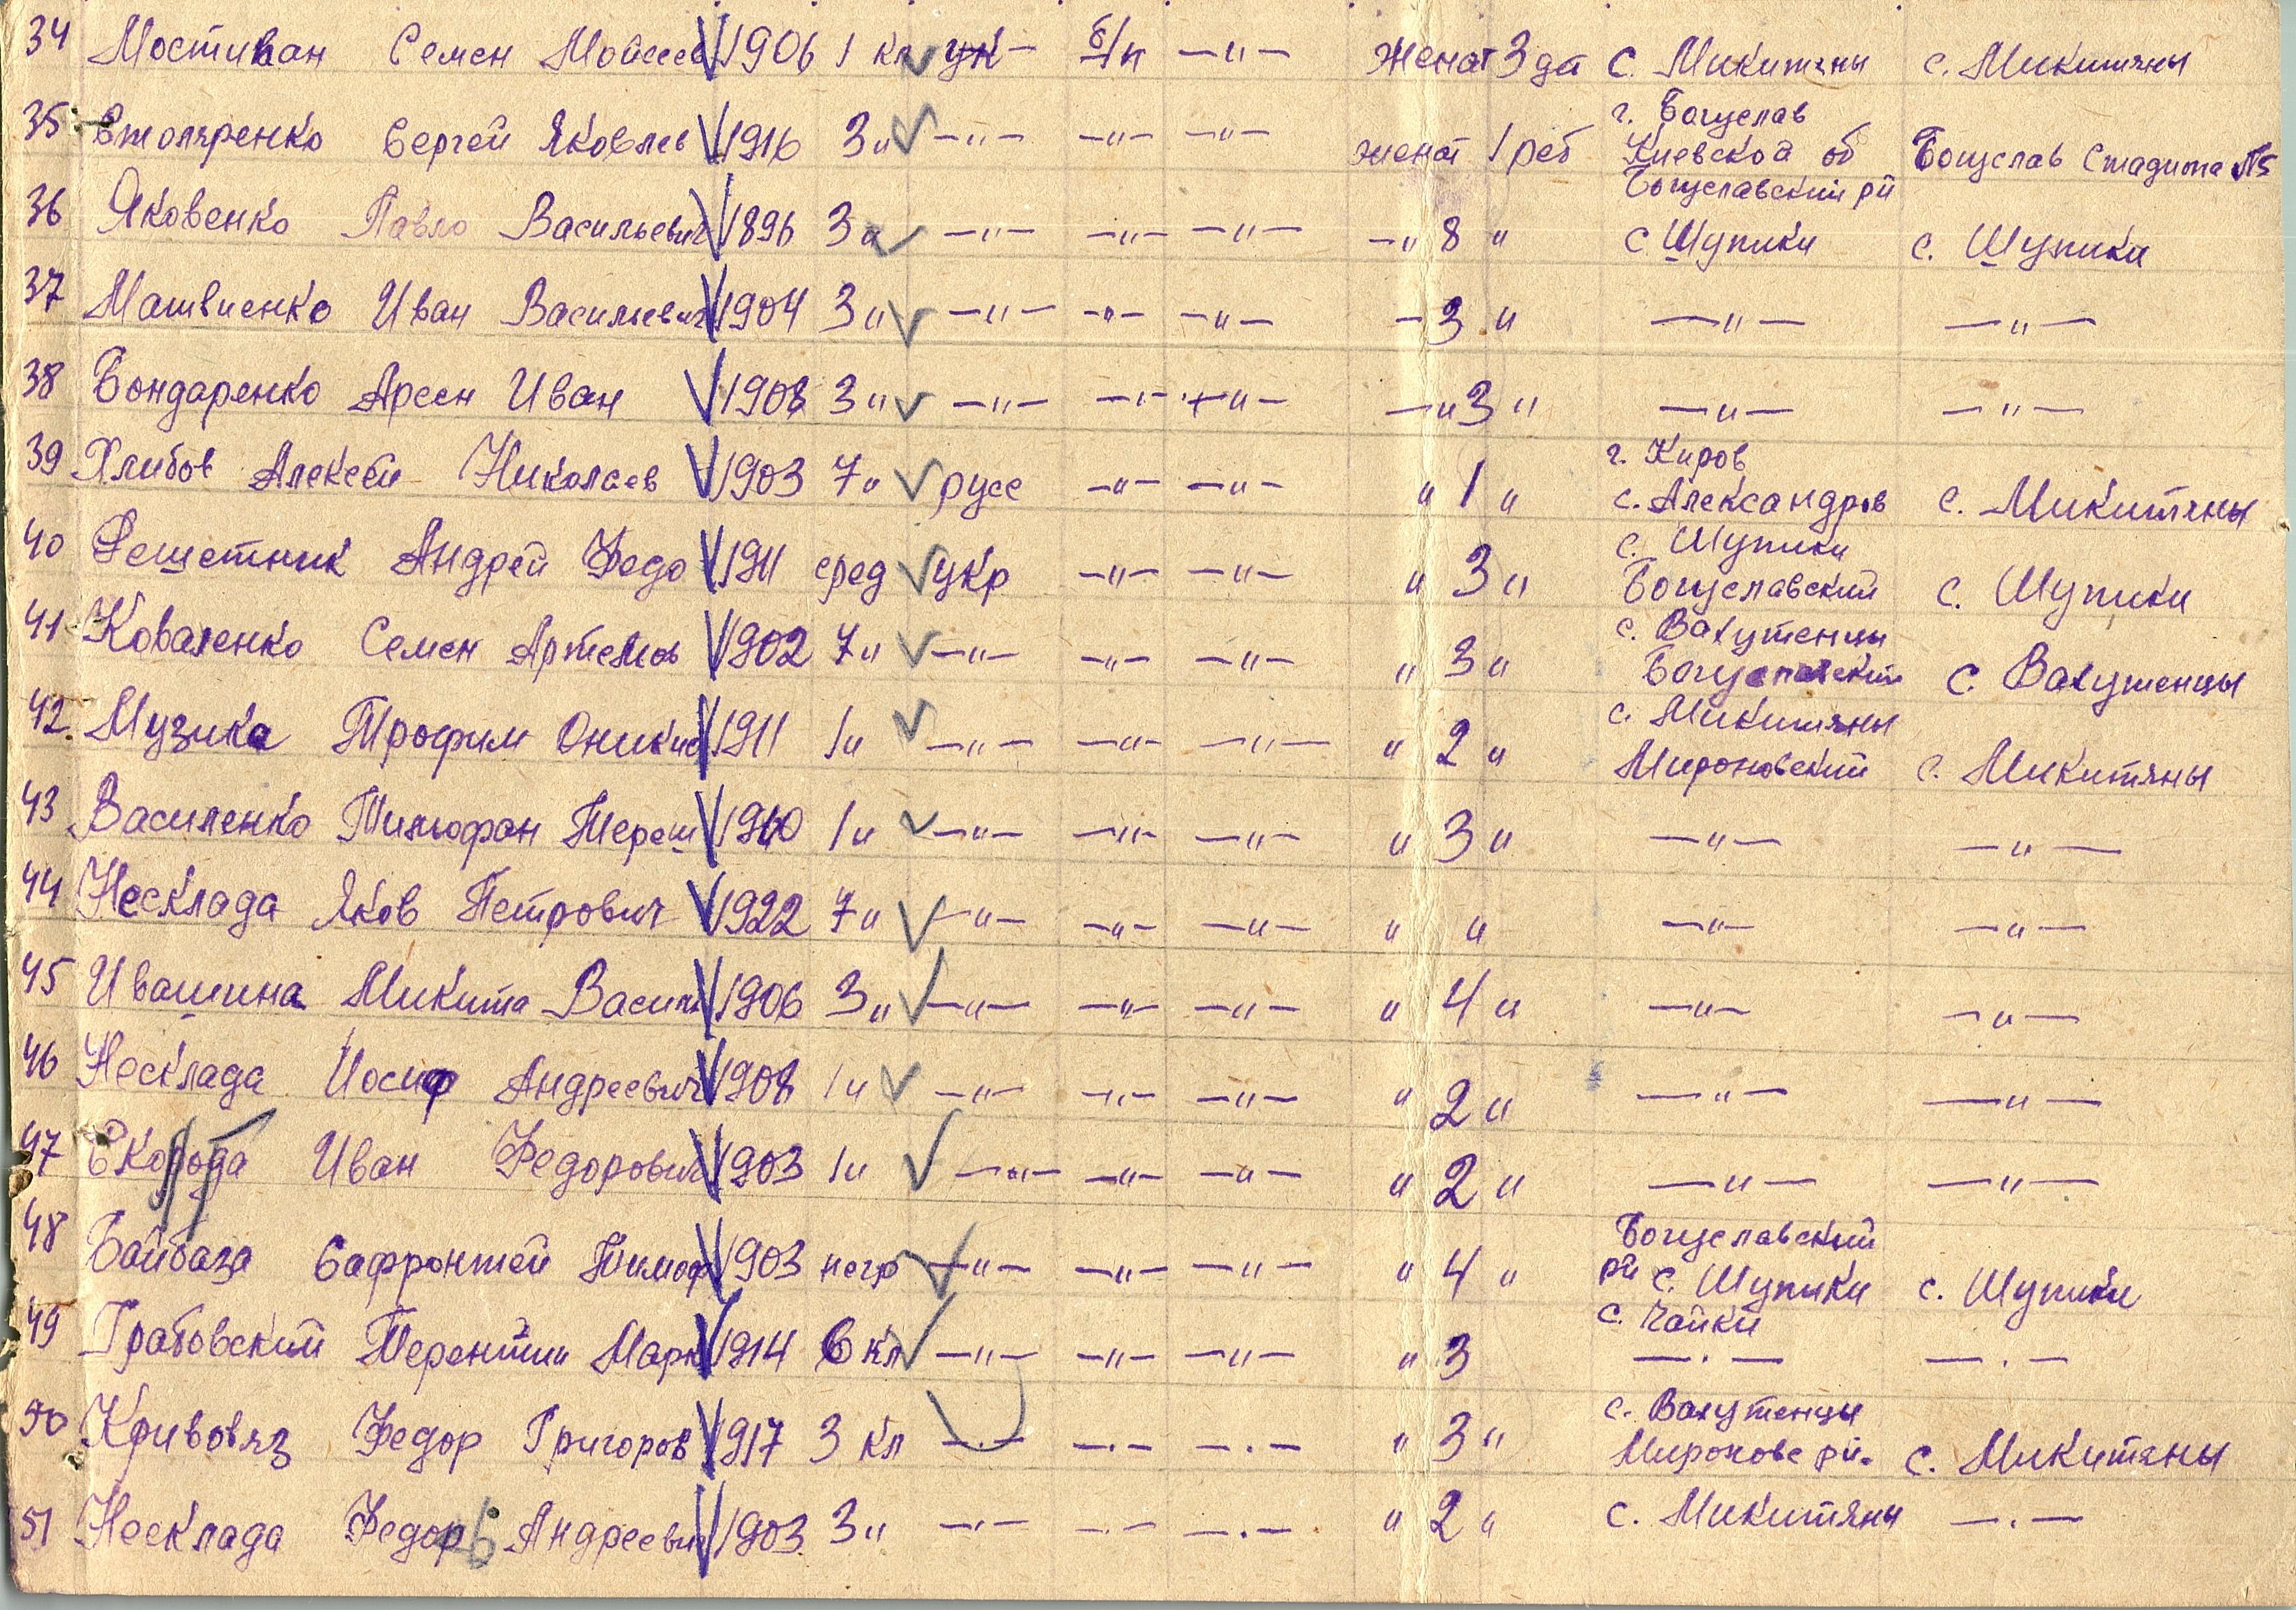 34 Мостиван Семен Мойсеев V 1906 1 кл ук- б/п —"— женат 3 дт с. Микитяны с. Микитяны
35 Столяренко Сергей Яковлев V 1916 3 " —"— —"— —"— женат 1 реб г. Богуслав Киевской об Богуславский рй Богуслав Стадиона №5
36 Яковенко Павло Васильевич V 1896 3 " —"— —"— —"— —" 8 " с Шупики с. Шупики
37 Матвиенко Иван Васильевич V 1904 3 " —"— —"— —"— — 3 " —"— —"—
38 Бондаренко Арсен Иван V 1908 3 " —"— —"— —"— —" 3 " —"— —"—
39 Хлибов Алексей Николаев V 1903 7 " русс —"— —"— " 1 " г. Киров с. Александров с. Микитяны
40 Решетник Андрей Федо V 1911 сред укр —"— —"— " 3 " с. Шупики Богуславский с. Шупики
41 Коваленко Семен Артемов V 1902 7 " —"— —"— —"— " 3 " с. Вахутенцы Богуславский с. Вахутенцы
42. Музика Трофим Оникие V 1911 1 " —"— —"— —"— " 2 " с. Микитяны Мироновский с. Микитяны
43 Василенко Тимофан Тереш V 1910 1 " —"— —"— —"— " 3 " —"— —"—
44 Несклада Яков Петрович V 1922 7 " —"— —"— —"— " " —"— —"—
45 Ивашина Микита Васил V 1906 3 " —"— —"— —"— " 4 " —"— —"—
46 Несклада Иосиф Андреевич V 1908 1 " —"— —"— —"— " 2 " —"— —"—
47 Иван Федорович V 1903 1 " —"— —"— —"— " 2 " —"— —"—
48 Байбаза Сафронтей Тимоф V 1903 негр —"— —"— —"— " 4 " Богуславский рй с. Шупики с. Шупики
49 Грабовский Терентии Марк V 1914 6 кл —"— —"— —"— " 3 с. Чайки —.— —.—
50 Кривовяз Федор Григоров V 1917 3 кл —.— —.— —.— " 3 " с. Вахутенцы Мироновс рй. с. Микитяны
51 Несклада Федор Андреевич V 1903 3 " —.— —.— —.— " 2 " с. Микитяны —.—